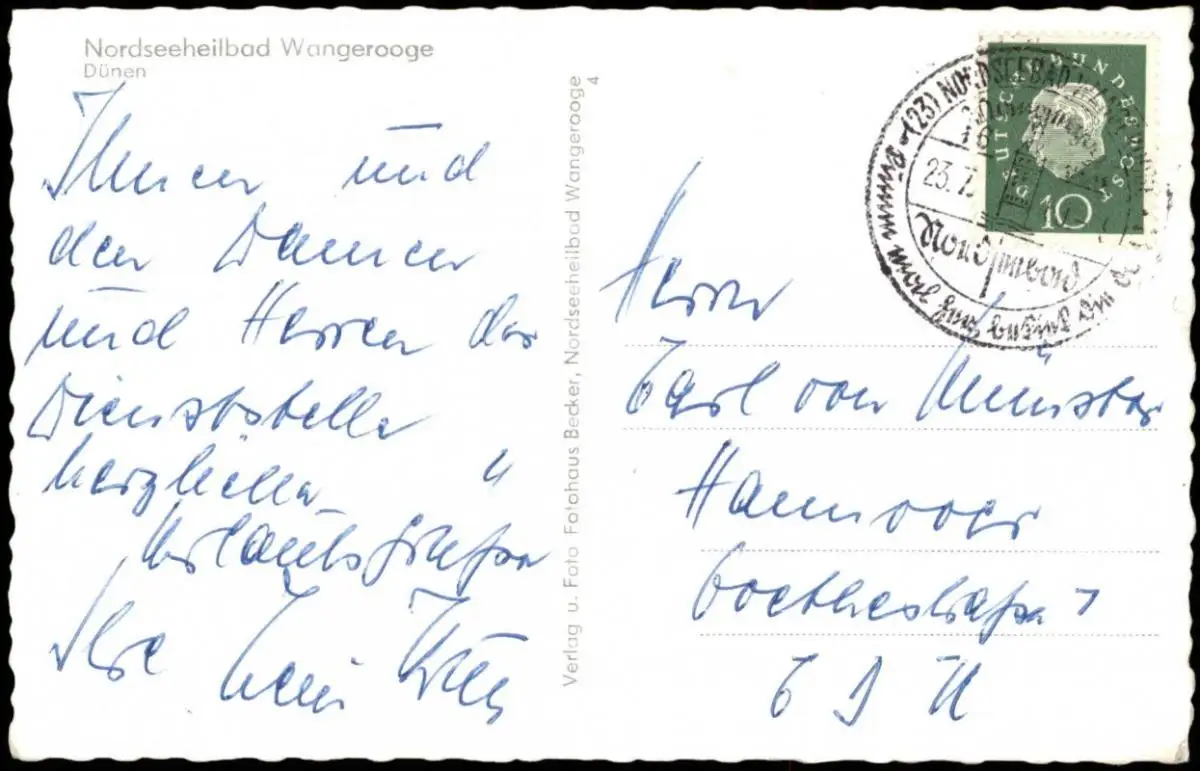 Nordseeheilbad Wangerooge
Dünen
Ihnen und
den Damen
und Herren der
Dienststelle
herzliche
Urlaubsgrüße
Ihr
Verlag u. Foto Fotohaus Becker, Nordseeheilbad Wangerooge
4
(23) NORDSEEBAD
23.7
Nordseebad
DEUTSCHE BUNDESPOST
10
Herrn
von Münster
Hannover
Goethestraße 7